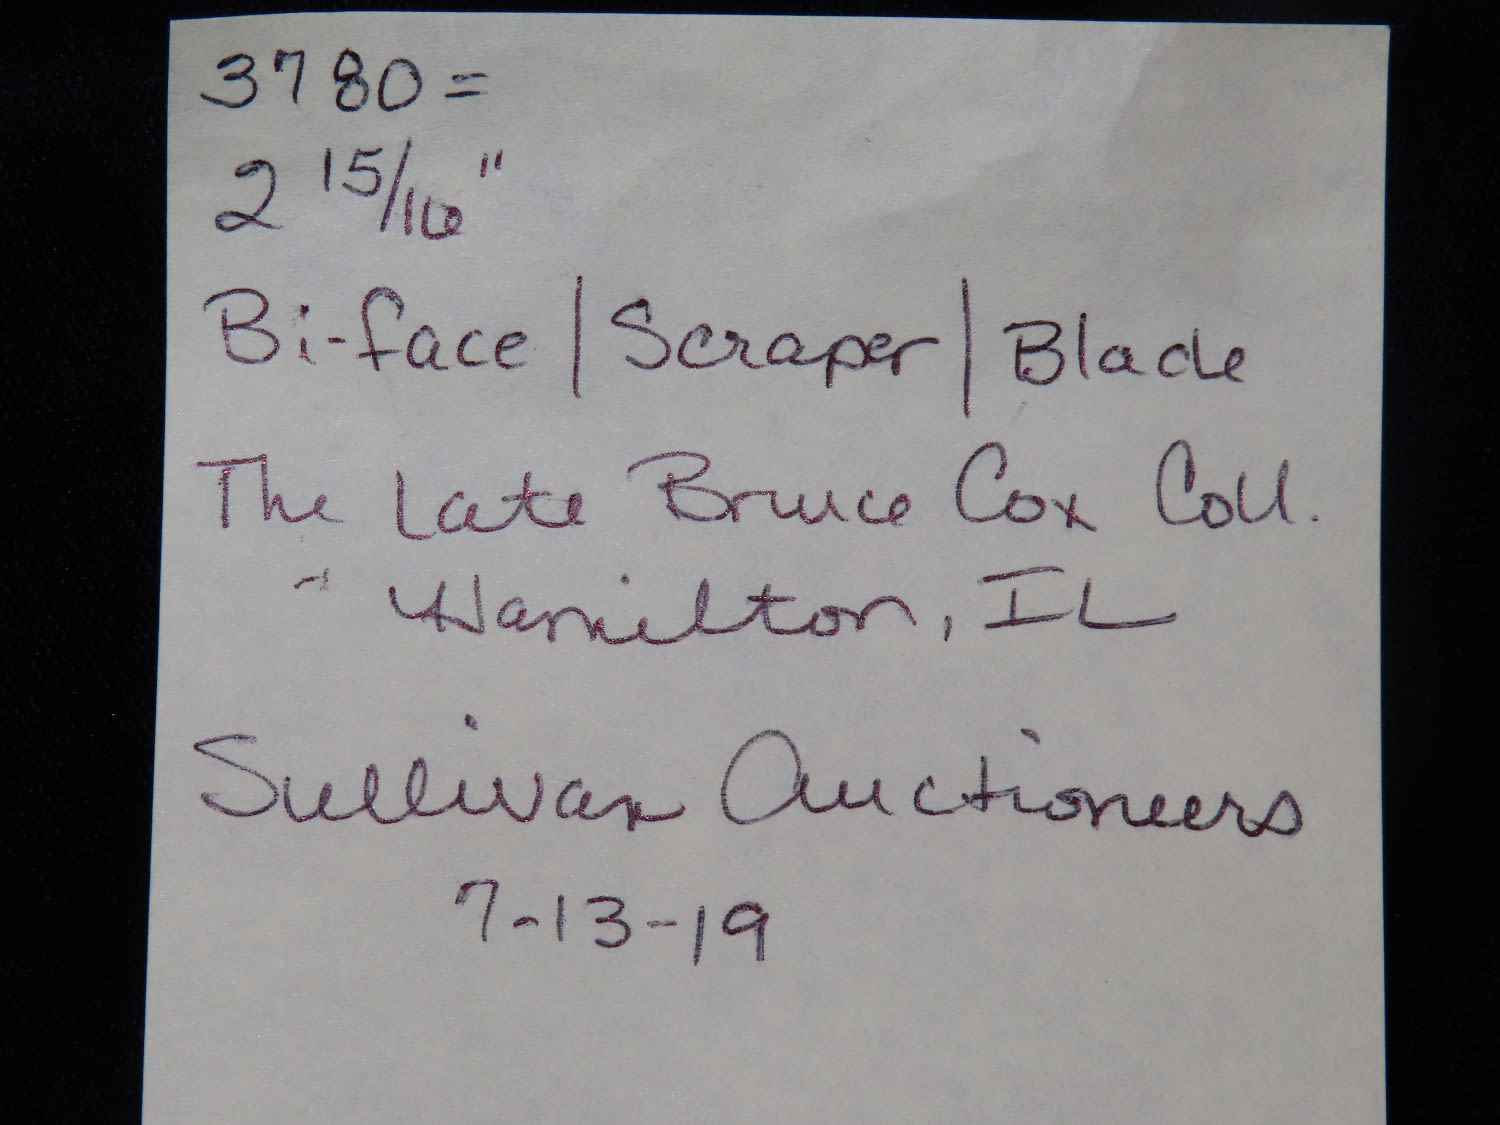 3780=
2 15/16"
Bi-face | Scraper | Blade
The Late Bruce Cox Coll.
- Hamilton, IL
Sullivan Auctioneers
7-13-19